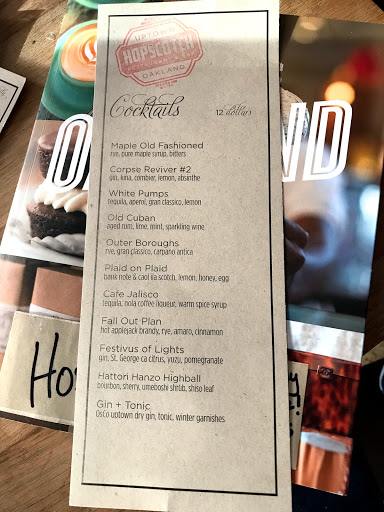 UPTOWN
HOPSCOTCH
RESTAURANT & BAR
OAKLAND
Cocktails 12 dollars
Maple Old Fashioned
rye, pure maple syrup, bitters
Corpse Reviver #2
gin, kina, combier, lemon, absinthe
White Pumps
tequila, aperol, gran classico, lemon
Old Cuban
aged rum, lime, mint, sparkling wine
Outer Boroughs
rye, gran classico, carpano antica
Plaid on Plaid
bank note & caol ila scotch, lemon, honey, egg
Cafe Jalisco
tequila, nola coffee liqueur, warm spice syrup
Fall Out Plan
hot applejack brandy, rye, amaro, cinnamon
Festivus of Lights
gin, St. George ca citrus, yuzu, pomegranate
Hattori Hanzo Highball
bourbon, sherry, umeboshi shrub, shiso leaf
Gin + Tonic
OsCo uptown dry gin, tonic, winter garnishes
O
ND
Ho